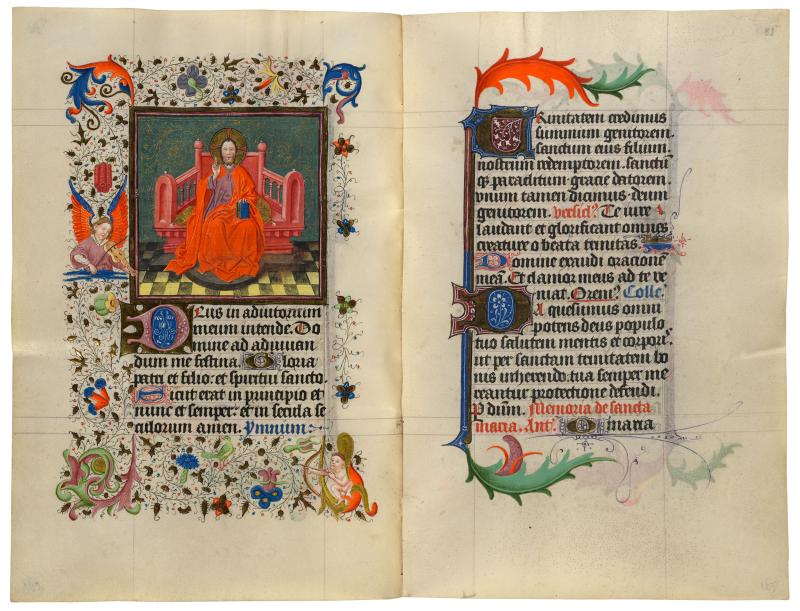 Deus in adiutorium
meum intende. Do
mine ad adiuuan
dum me festina. Gloria
patri et filio. et spiritui sancto.
Sicut erat in principio et
nunc et semper: et in secula se
culorum amen. Ymnum.
81
Trinitatem credimus
summum genitorem.
sanctum eius filium.
nostrum redemptorem. sanctū
q̄ paraclitum gracie datorem.
vnium tamen dicimus deum
genitorem. versicꝰ. Te iure
laudant et glorificant omnes
creature o beata trinitas.
Domine exaudi oracionē
meā. Et clamor meus ad te ve
niat. Orem̄ꝰ. Colle.
A quesumus omni
potens deus populo
tuo salutem mentis et corporꝭ.
ut per sanctam trinitatem bo
nis inherendo. tua semper me
reantur protectione defendi.
P dīum. Memoria de sancta
maria. Antᵃ. O maria